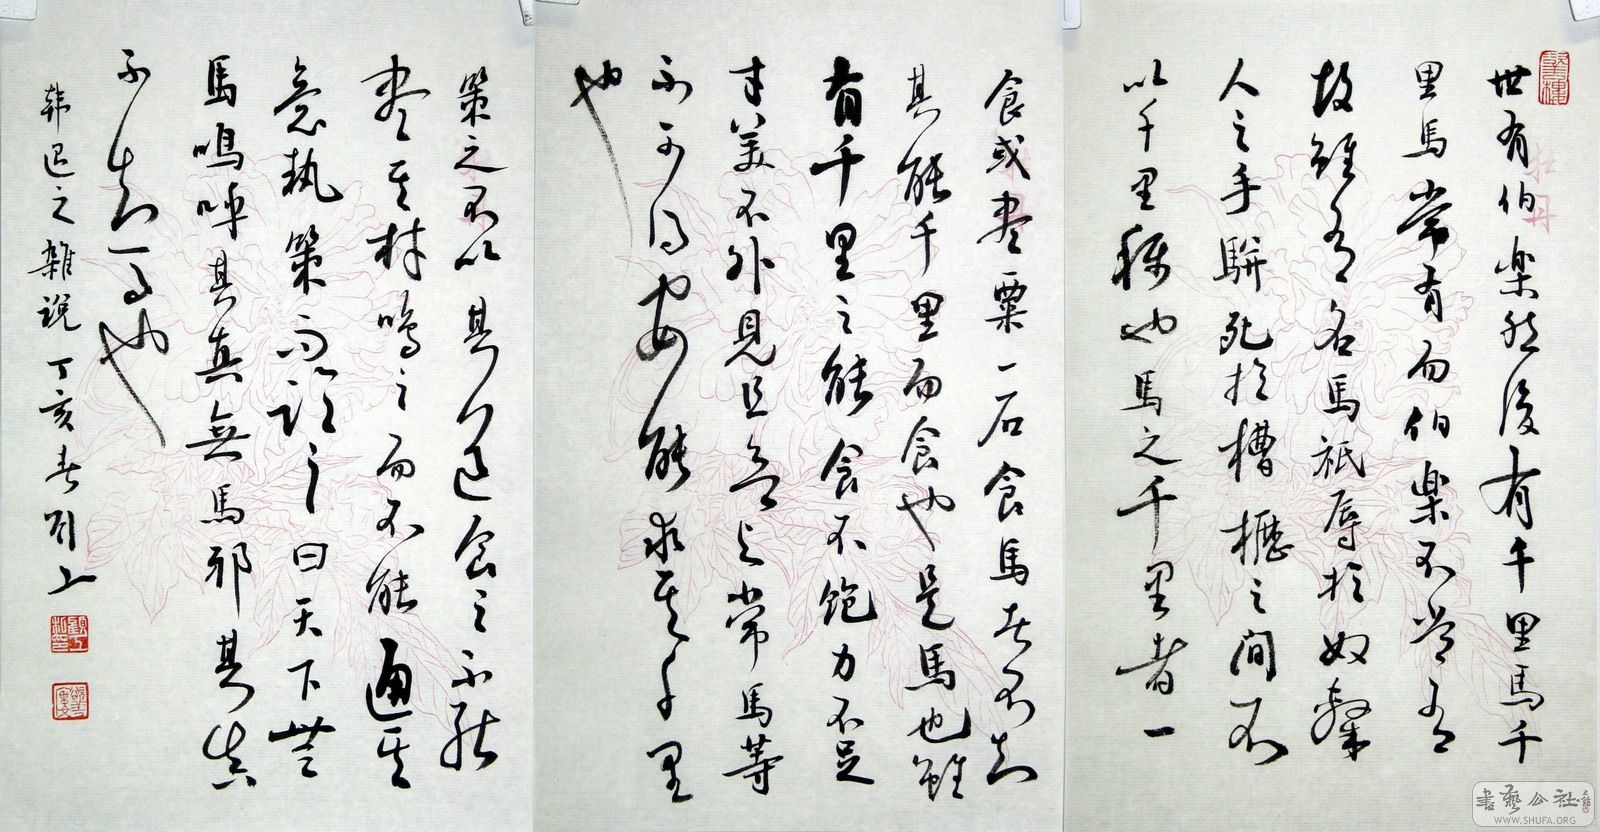 世有伯楽然後有千里馬千
里馬常有而伯楽不常有
故雖有名馬祇辱於奴隸
人之手駢死於槽櫪之間不
以千里稱也馬之千里者一
食或盡粟一石食馬者不知
其能千里而食也是馬也雖
有千里之能食不飽力不足
才美不外見且欲與常馬等
不可得安能求其千里
也
策之不以其道食之不能
盡其材鳴之而不能通其
意執策而臨之曰天下無
馬嗚呼其真無馬邪其真
不知馬也
韩退之雜説 丁亥春 顾工
牡丹
書藝公社
WWW.SHUFA.ORG